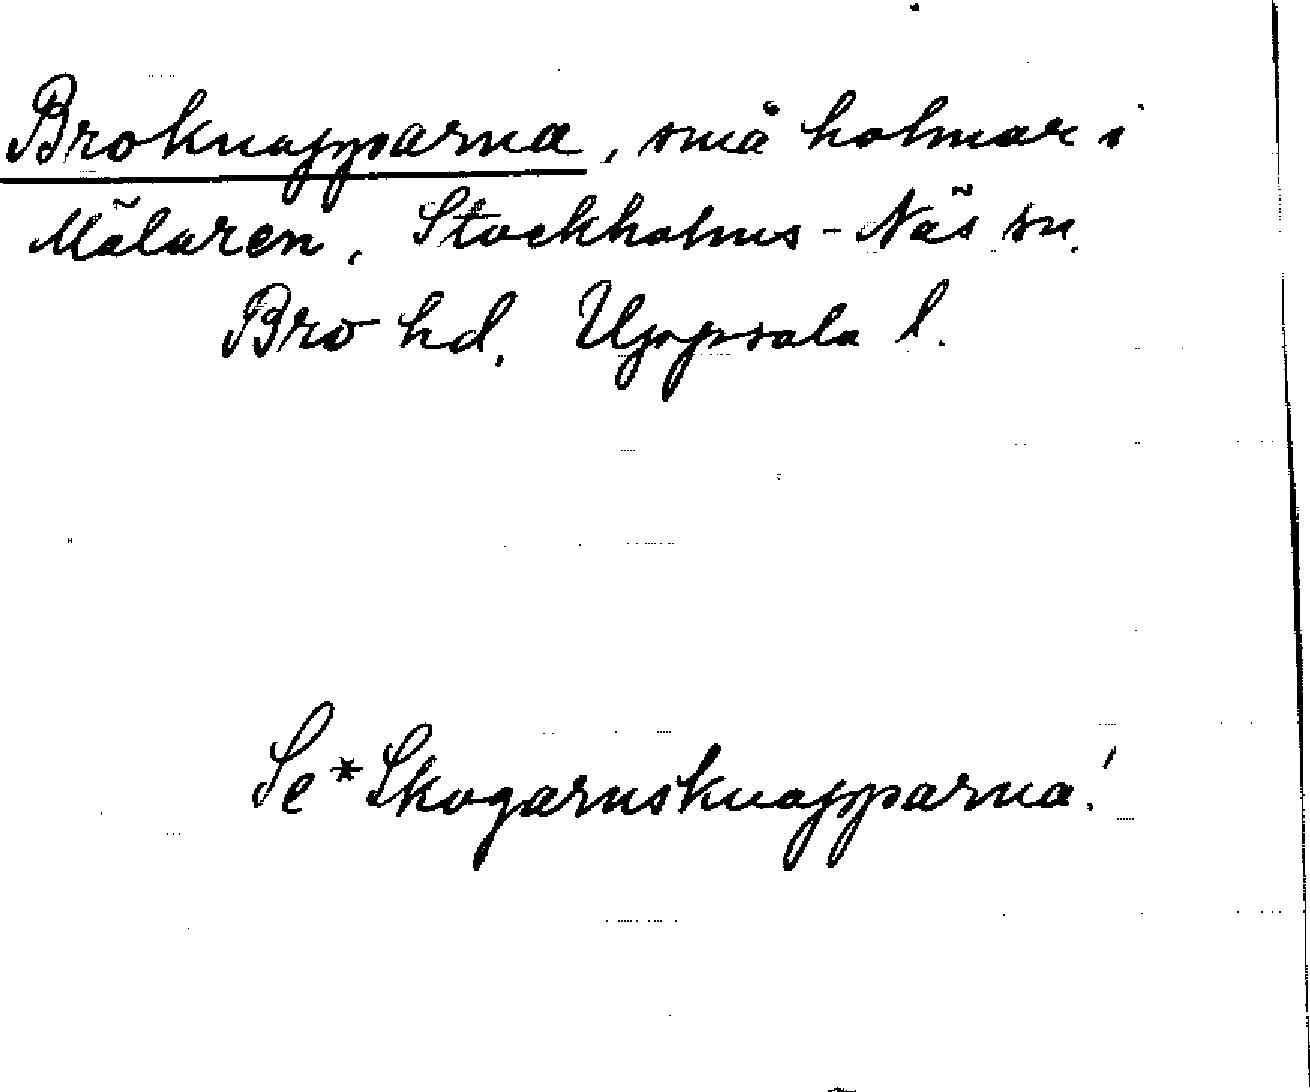 Broknapparna, små holmar i
Mälaren, Stockholms-Näs sn.
Bro hd, Uppsala l.
Se *Skogarnsknapparna!